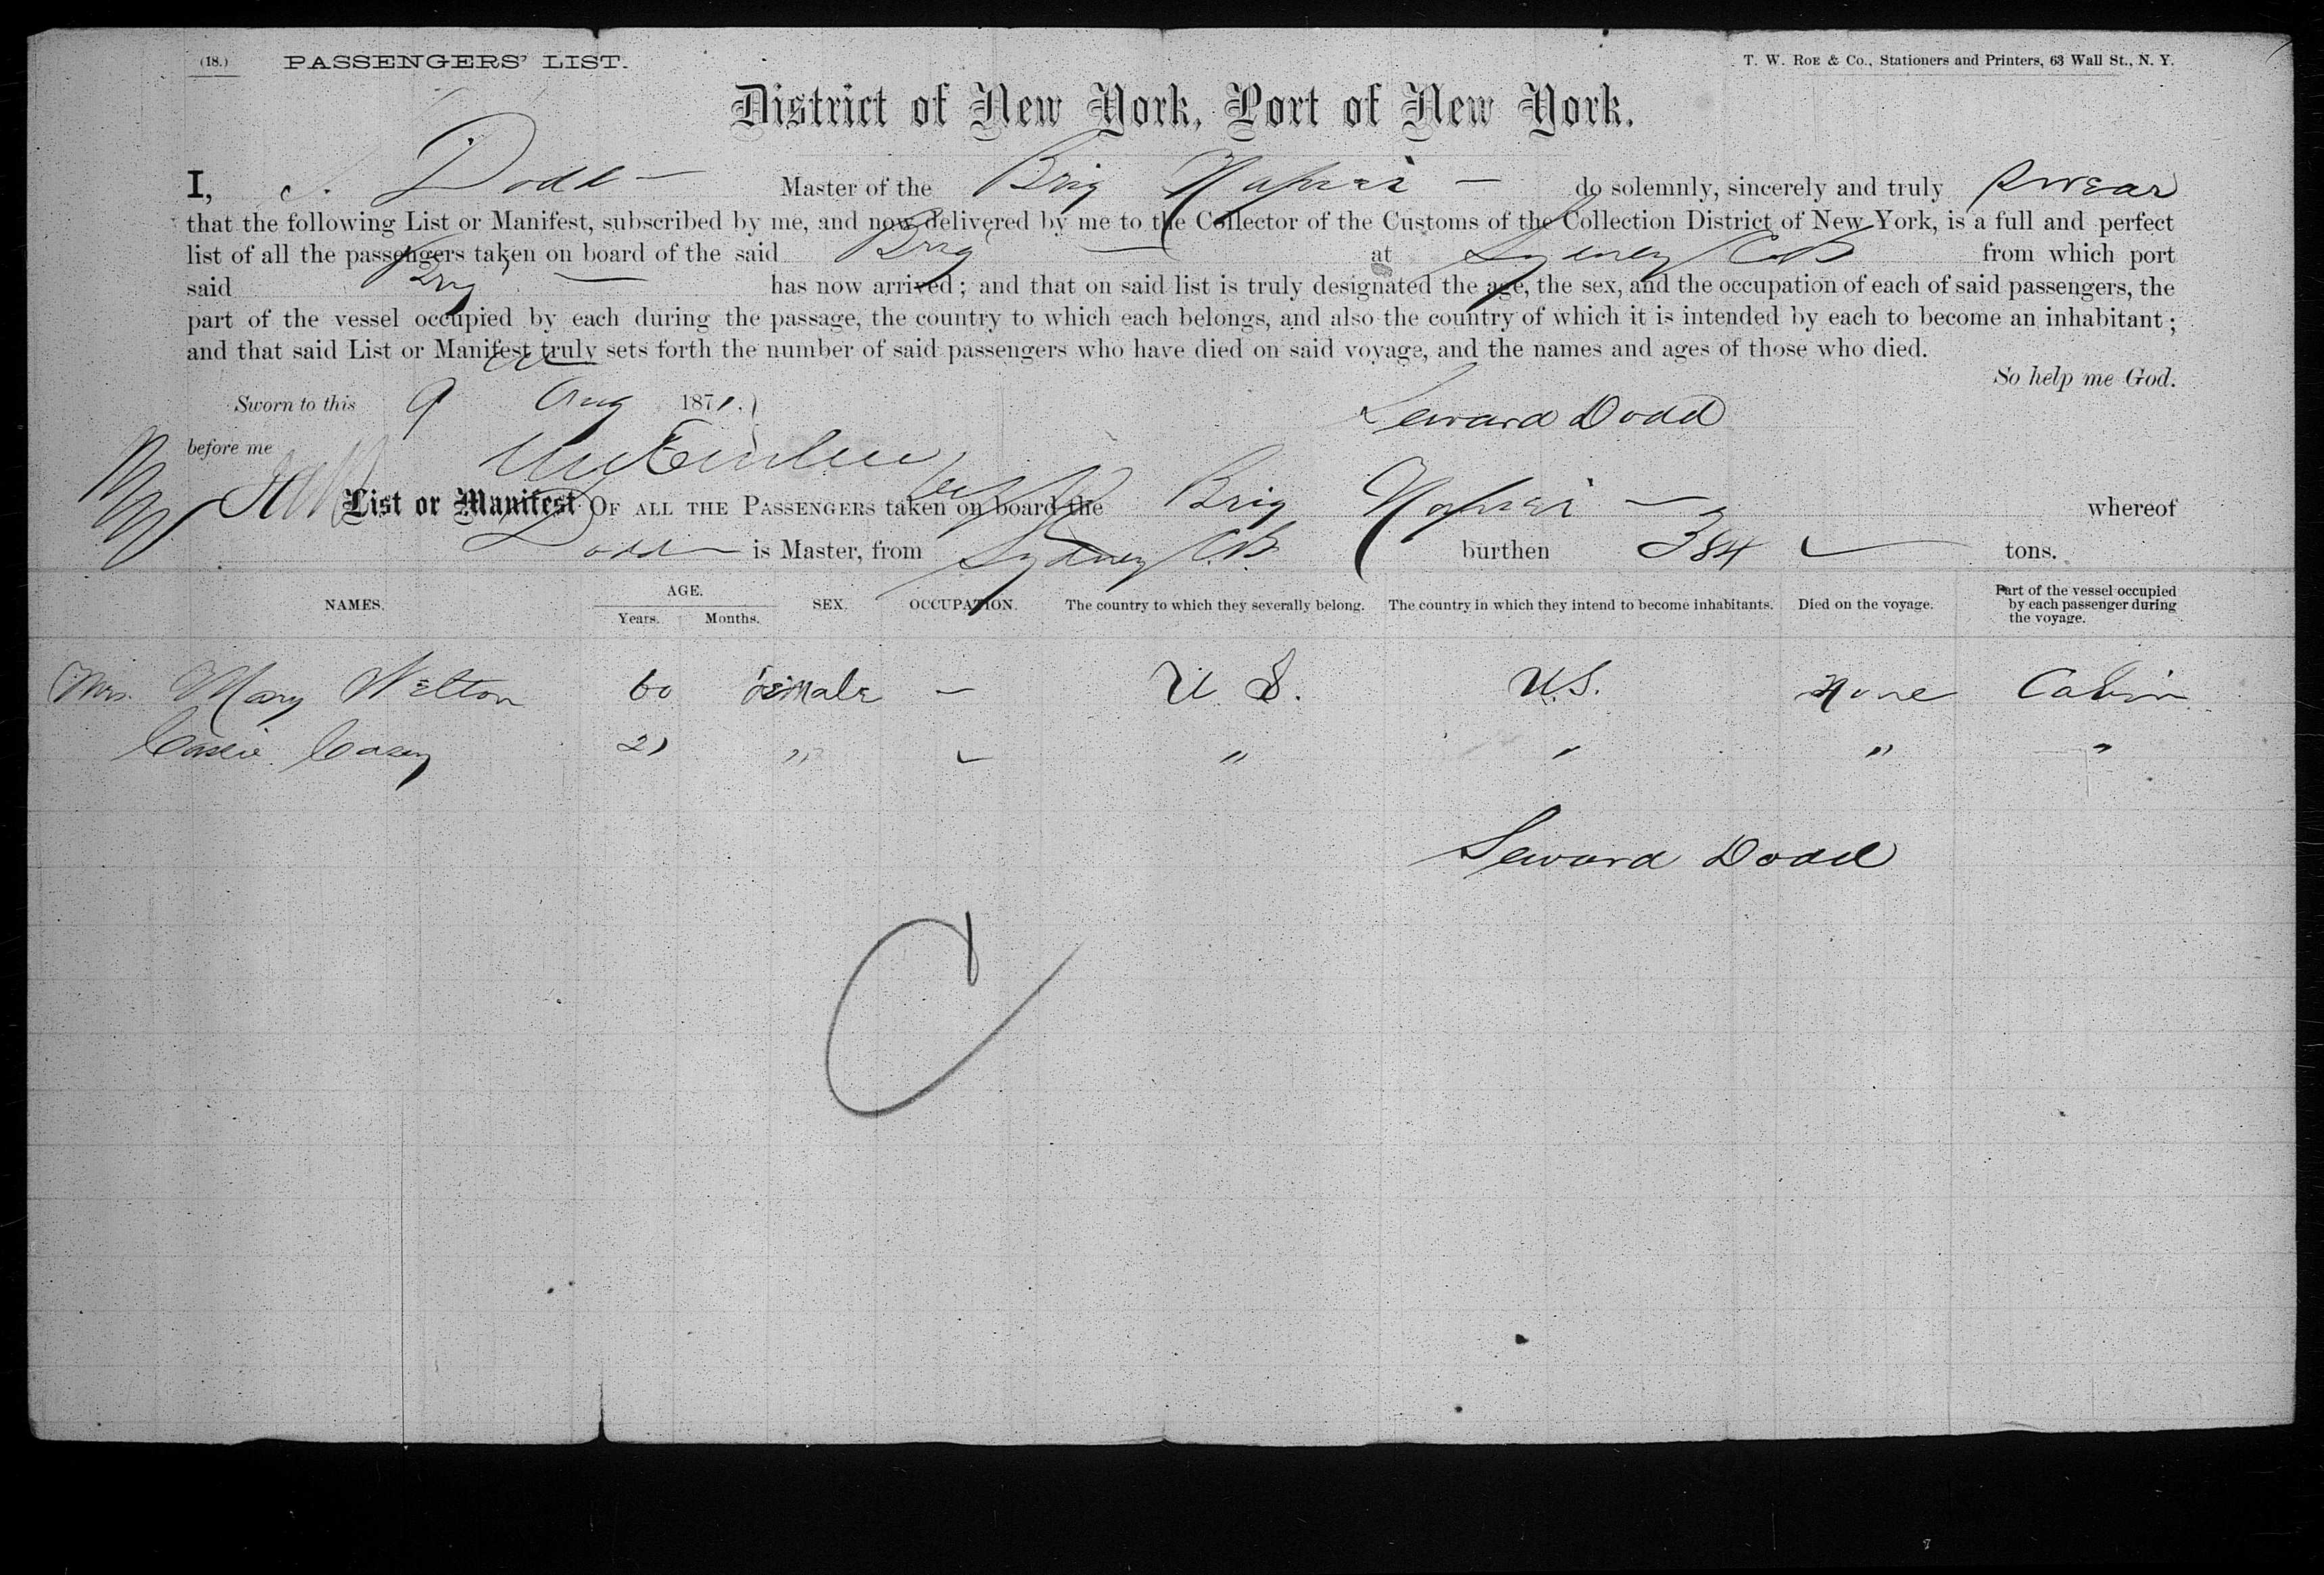 (18.) PASSENGERS' LIST. T. W. Roe & Co., Stationers and Printers, 63 Wall St., N. Y.
District of New York, Port of New York.
I, S. Dodd — Master of the Brig Napier — do solemnly, sincerely and truly swear
that the following List or Manifest, subscribed by me, and now delivered by me to the Collector of the Customs of the Collection District of New York, is a full and perfect
list of all the passengers taken on board of the said Brig — at Sydney CB from which port
said Brig — has now arrived; and that on said list is truly designated the age, the sex, and the occupation of each of said passengers, the
part of the vessel occupied by each during the passage, the country to which each belongs, and also the country of which it is intended by each to become an inhabitant;
and that said List or Manifest truly sets forth the number of said passengers who have died on said voyage, and the names and ages of those who died.
So help me God.
Sworn to this 9 Aug 1871. Seward Dodd
before me
List or Manifest OF ALL THE PASSENGERS taken on board the Brig Napier — whereof
Dodd — is Master, from Sydney C.B. burthen 384 tons.
NAMES. AGE. Years. Months. SEX. OCCUPATION. The country to which they severally belong. The country in which they intend to become inhabitants. Died on the voyage. Part of the vessel occupied by each passenger during the voyage.
Mrs. Mary Welton 60 Female — U. S. U.S. None Cabin
Casey 21 " " " " "
Seward Dodd
C